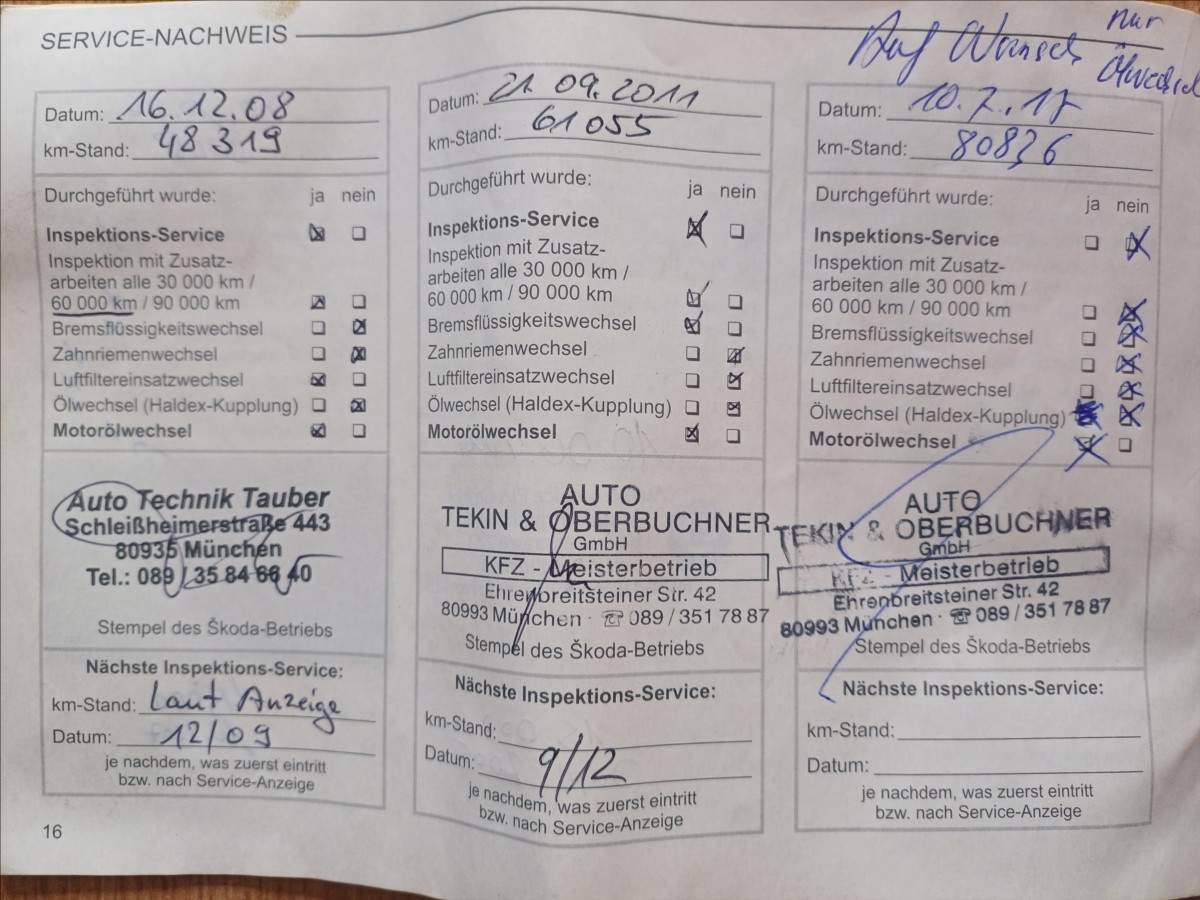 SERVICE-NACHWEIS
Auf Wunsch nur
Ölwechsel
Datum: 16.12.08
km-Stand: 48 319
Durchgeführt wurde: ja nein
Inspektions-Service
Inspektion mit Zusatz-
arbeiten alle 30 000 km /
60 000 km / 90 000 km
Bremsflüssigkeitswechsel
Zahnriemenwechsel
Luftfiltereinsatzwechsel
Ölwechsel (Haldex-Kupplung)
Motorölwechsel
Auto Technik Tauber
Schleißheimerstraße 443
80935 München
Tel.: 089 / 35 84 66 40
Stempel des Škoda-Betriebs
Nächste Inspektions-Service:
km-Stand: Laut Anzeige
Datum: 12/09
je nachdem, was zuerst eintritt
bzw. nach Service-Anzeige
16
Datum: 21.09.2011
km-Stand: 61055
Durchgeführt wurde: ja nein
Inspektions-Service
Inspektion mit Zusatz-
arbeiten alle 30 000 km /
60 000 km / 90 000 km
Bremsflüssigkeitswechsel
Zahnriemenwechsel
Luftfiltereinsatzwechsel
Ölwechsel (Haldex-Kupplung)
Motorölwechsel
AUTO
TEKIN & OBERBUCHNER
GmbH
KFZ - Meisterbetrieb
Ehrenbreitsteiner Str. 42
80993 München · ☏ 089 / 351 78 87
Stempel des Škoda-Betriebs
Nächste Inspektions-Service:
km-Stand:
Datum: 9/12
je nachdem, was zuerst eintritt
bzw. nach Service-Anzeige
Datum: 10.7.17
km-Stand: 80836
Durchgeführt wurde: ja nein
Inspektions-Service
Inspektion mit Zusatz-
arbeiten alle 30 000 km /
60 000 km / 90 000 km
Bremsflüssigkeitswechsel
Zahnriemenwechsel
Luftfiltereinsatzwechsel
Ölwechsel (Haldex-Kupplung)
Motorölwechsel
AUTO
TEKIN & OBERBUCHNER
GmbH
KFZ - Meisterbetrieb
Ehrenbreitsteiner Str. 42
80993 München · ☏ 089 / 351 78 87
Stempel des Škoda-Betriebs
Nächste Inspektions-Service:
km-Stand:
Datum:
je nachdem, was zuerst eintritt
bzw. nach Service-Anzeige